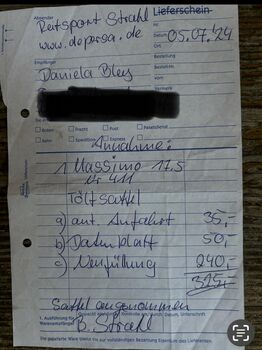 Absender
Lieferschein
Reitsport Strahl
Datum 05.07.'24
www.deporsa.de
Ort
Bestellung
Empfänger
Bestellt.
Daniela Bley
vom
Vermerk
Boten Fracht Post Paketdienst
Bahn Spedition Express
Annahme:
1 Massimo 17,5
Nr 411
Töltsattel
a) ant. Anfahrt 35,-
b) Datenblatt 50,-
c) Neufüllung 240,-
325,-
Sattel angenommen
B. Strahl
Die gelieferte Ware bleibt bis zur vollständigen Bezahlung Eigentum des Lieferanten.